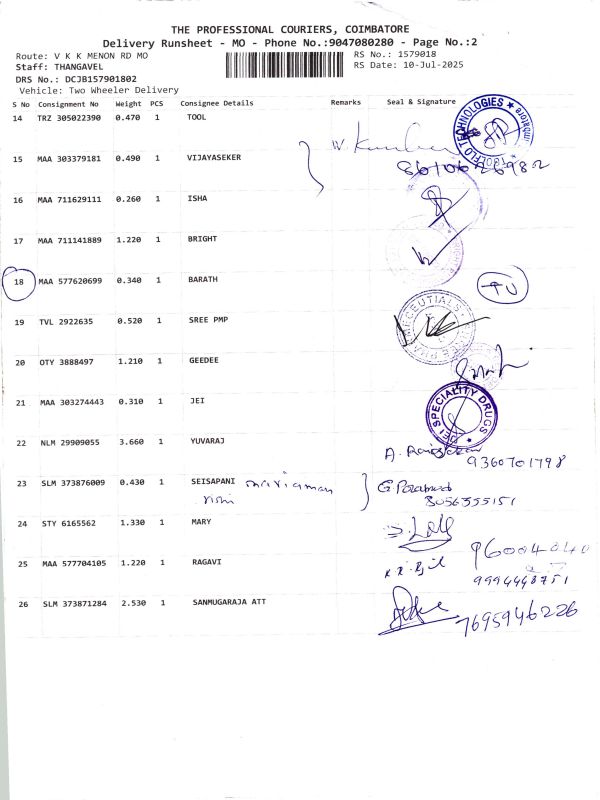 THE PROFESSIONAL COURIERS, COIMBATORE
Delivery Runsheet - MO - Phone No.:9047080280 - Page No.:2
Route: V K K MENON RD MO
RS No.: 1579018
Staff: THANGAVEL
RS Date: 10-Jul-2025
DRS No.: DCJB157901802
Vehicle: Two Wheeler Delivery
S No Consignment No Weight PCS Consignee Details Remarks Seal & Signature
14 TRZ 305022390 0.470 1 TOOL
TECHNOLOGIES
15 MAA 303379181 0.490 1 VIJAYASEKER
16 MAA 711629111 0.260 1 ISHA
17 MAA 711141889 1.220 1 BRIGHT
18 MAA 577620699 0.340 1 BARATH
19 TVL 2922635 0.520 1 SREE PMP
20 OTY 3888497 1.210 1 GEEDEE
21 MAA 303274443 0.310 1 JEI
JEI SPECIALITY DRUGS
22 NLM 29909055 3.660 1 YUVARAJ
9360701798
23 SLM 373876009 0.430 1 SEISAPANI
8056355151
24 STY 6165562 1.330 1 MARY
25 MAA 577704105 1.220 1 RAGAVI
9994448751
26 SLM 373871284 2.530 1 SANMUGARAJA ATT
7695946226